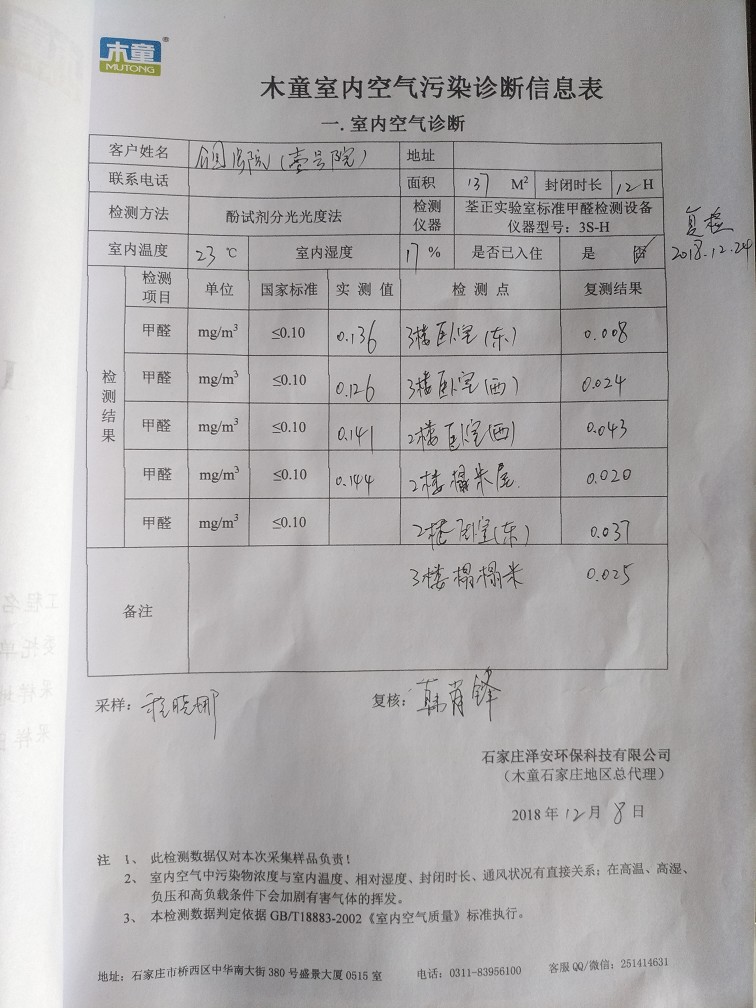 木童®
MUTONG
木童室内空气污染诊断信息表
一.室内空气诊断
客户姓名 (壹号院) 地址
联系电话 面积 137 M² 封闭时长 12 H
检测方法 酚试剂分光光度法 检测仪器 荃正实验室标准甲醛检测设备
仪器型号：3S-H
复检
2018.12.24
室内温度 23 ℃ 室内湿度 17 % 是否已入住 是
检测结果 检测项目 单位 国家标准 实测值 检测点 复测结果
甲醛 mg/m³ ≤0.10 0.136 3楼卧室(东) 0.008
甲醛 mg/m³ ≤0.10 0.126 3楼卧室(西) 0.024
甲醛 mg/m³ ≤0.10 0.141 2楼卧室(西) 0.043
甲醛 mg/m³ ≤0.10 0.144 2楼榻米屋. 0.020
甲醛 mg/m³ ≤0.10 2楼卧室(东) 0.037
备注 3楼榻榻米 0.025
采样： 程晓娜 复核： 韩肖锋
石家庄泽安环保科技有限公司
（木童石家庄地区总代理）
2018 年 12 月 8 日
注 1、 此检测数据仅对本次采集样品负责！
2、 室内空气中污染物浓度与室内温度、相对湿度、封闭时长、通风状况有直接关系；在高温、高湿、
负压和高负载条件下会加剧有害气体的挥发。
3、 本检测数据判定依据 GB/T18883-2002《室内空气质量》标准执行。
地址：石家庄市桥西区中华南大街 380 号盛景大厦 0515 室 电话：0311-83956100 客服 QQ/微信：251414631